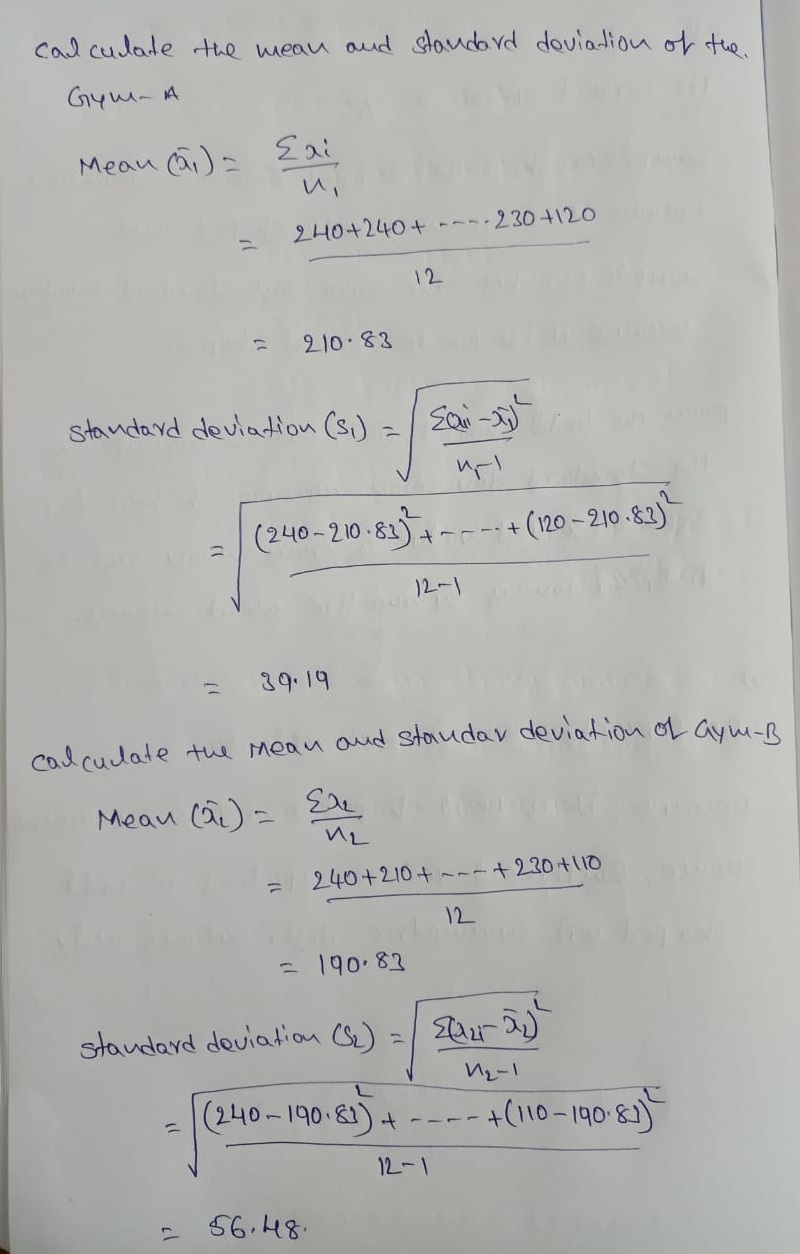 Calculate the mean and standard deviation of the.
Gym-A
Mean (x̄₁) = Σxi / n₁
= 240+240+ ----. 230+120 / 12
= 210.83
standard deviation (S₁) = √(Σ(xi - x̄₁)² / n₁-1)
= √((240-210.83)² + ----- + (120-210.83)² / 12-1)
= 39.19
Calculate the Mean and standar deviation of Gym-B
Mean (x̄₂) = Σx₂ / n₂
= 240+210+ --- + 230+110 / 12
= 190.83
standard deviation (S₂) = √(Σ(x₂i - x̄₂)² / n₂-1)
= √((240-190.83)² + ----- + (110-190.83)² / 12-1)
= 56.48.